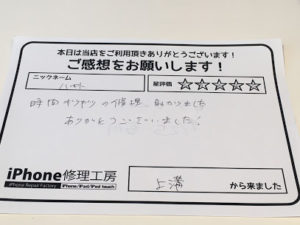 本日は当店をご利用頂きありがとうございます！
ご感想をお願いします！
ニックネーム
星評価 ☆☆☆☆☆
時間ギリギリの修理、助かりました
ありがとうございました！
iPhone修理工房
iPhone Repair Factory
iPhone/iPad/iPod touch
上溝 から来ました